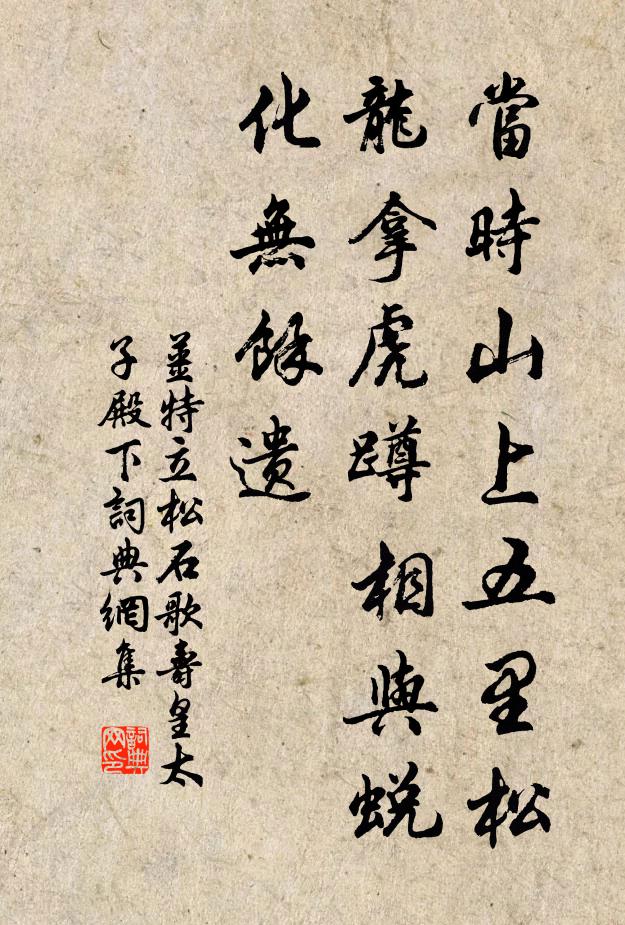 當時山上五里松
龍拿虎蹲相與蛻
化無餘遺
姜特立松石歌壽皇太
子殿下詞典網集
詞典
網印